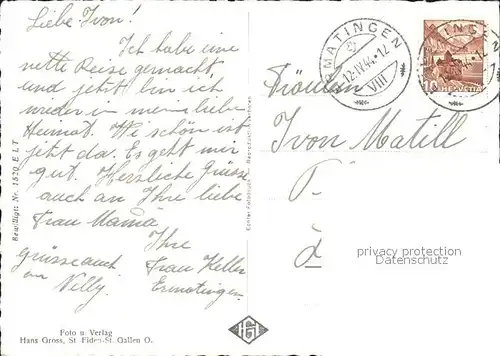 Liebe Ivon!
Ich habe eine
nette Reise gemacht
und jetzt bin ich
wieder in meine liebe
Heimat. Wi schön ist
jetzt da. Es geht mir
gut. Herzliche Grüsse
auch an Ihre liebe
Frau Mama
Ihre
Frau Keller
Ermatingen
grüsse auch
an Willy.
Foto u. Verlag
Hans Gross, St. Fiden-St. Gallen O.
Bewilligt Nr. 1520 E L T
ERMATINGEN
12.IV.44.-12
VIII
10
HELVETIA
Fräulein
Ivon Matill
privacy protection
Datenschutz
HGF